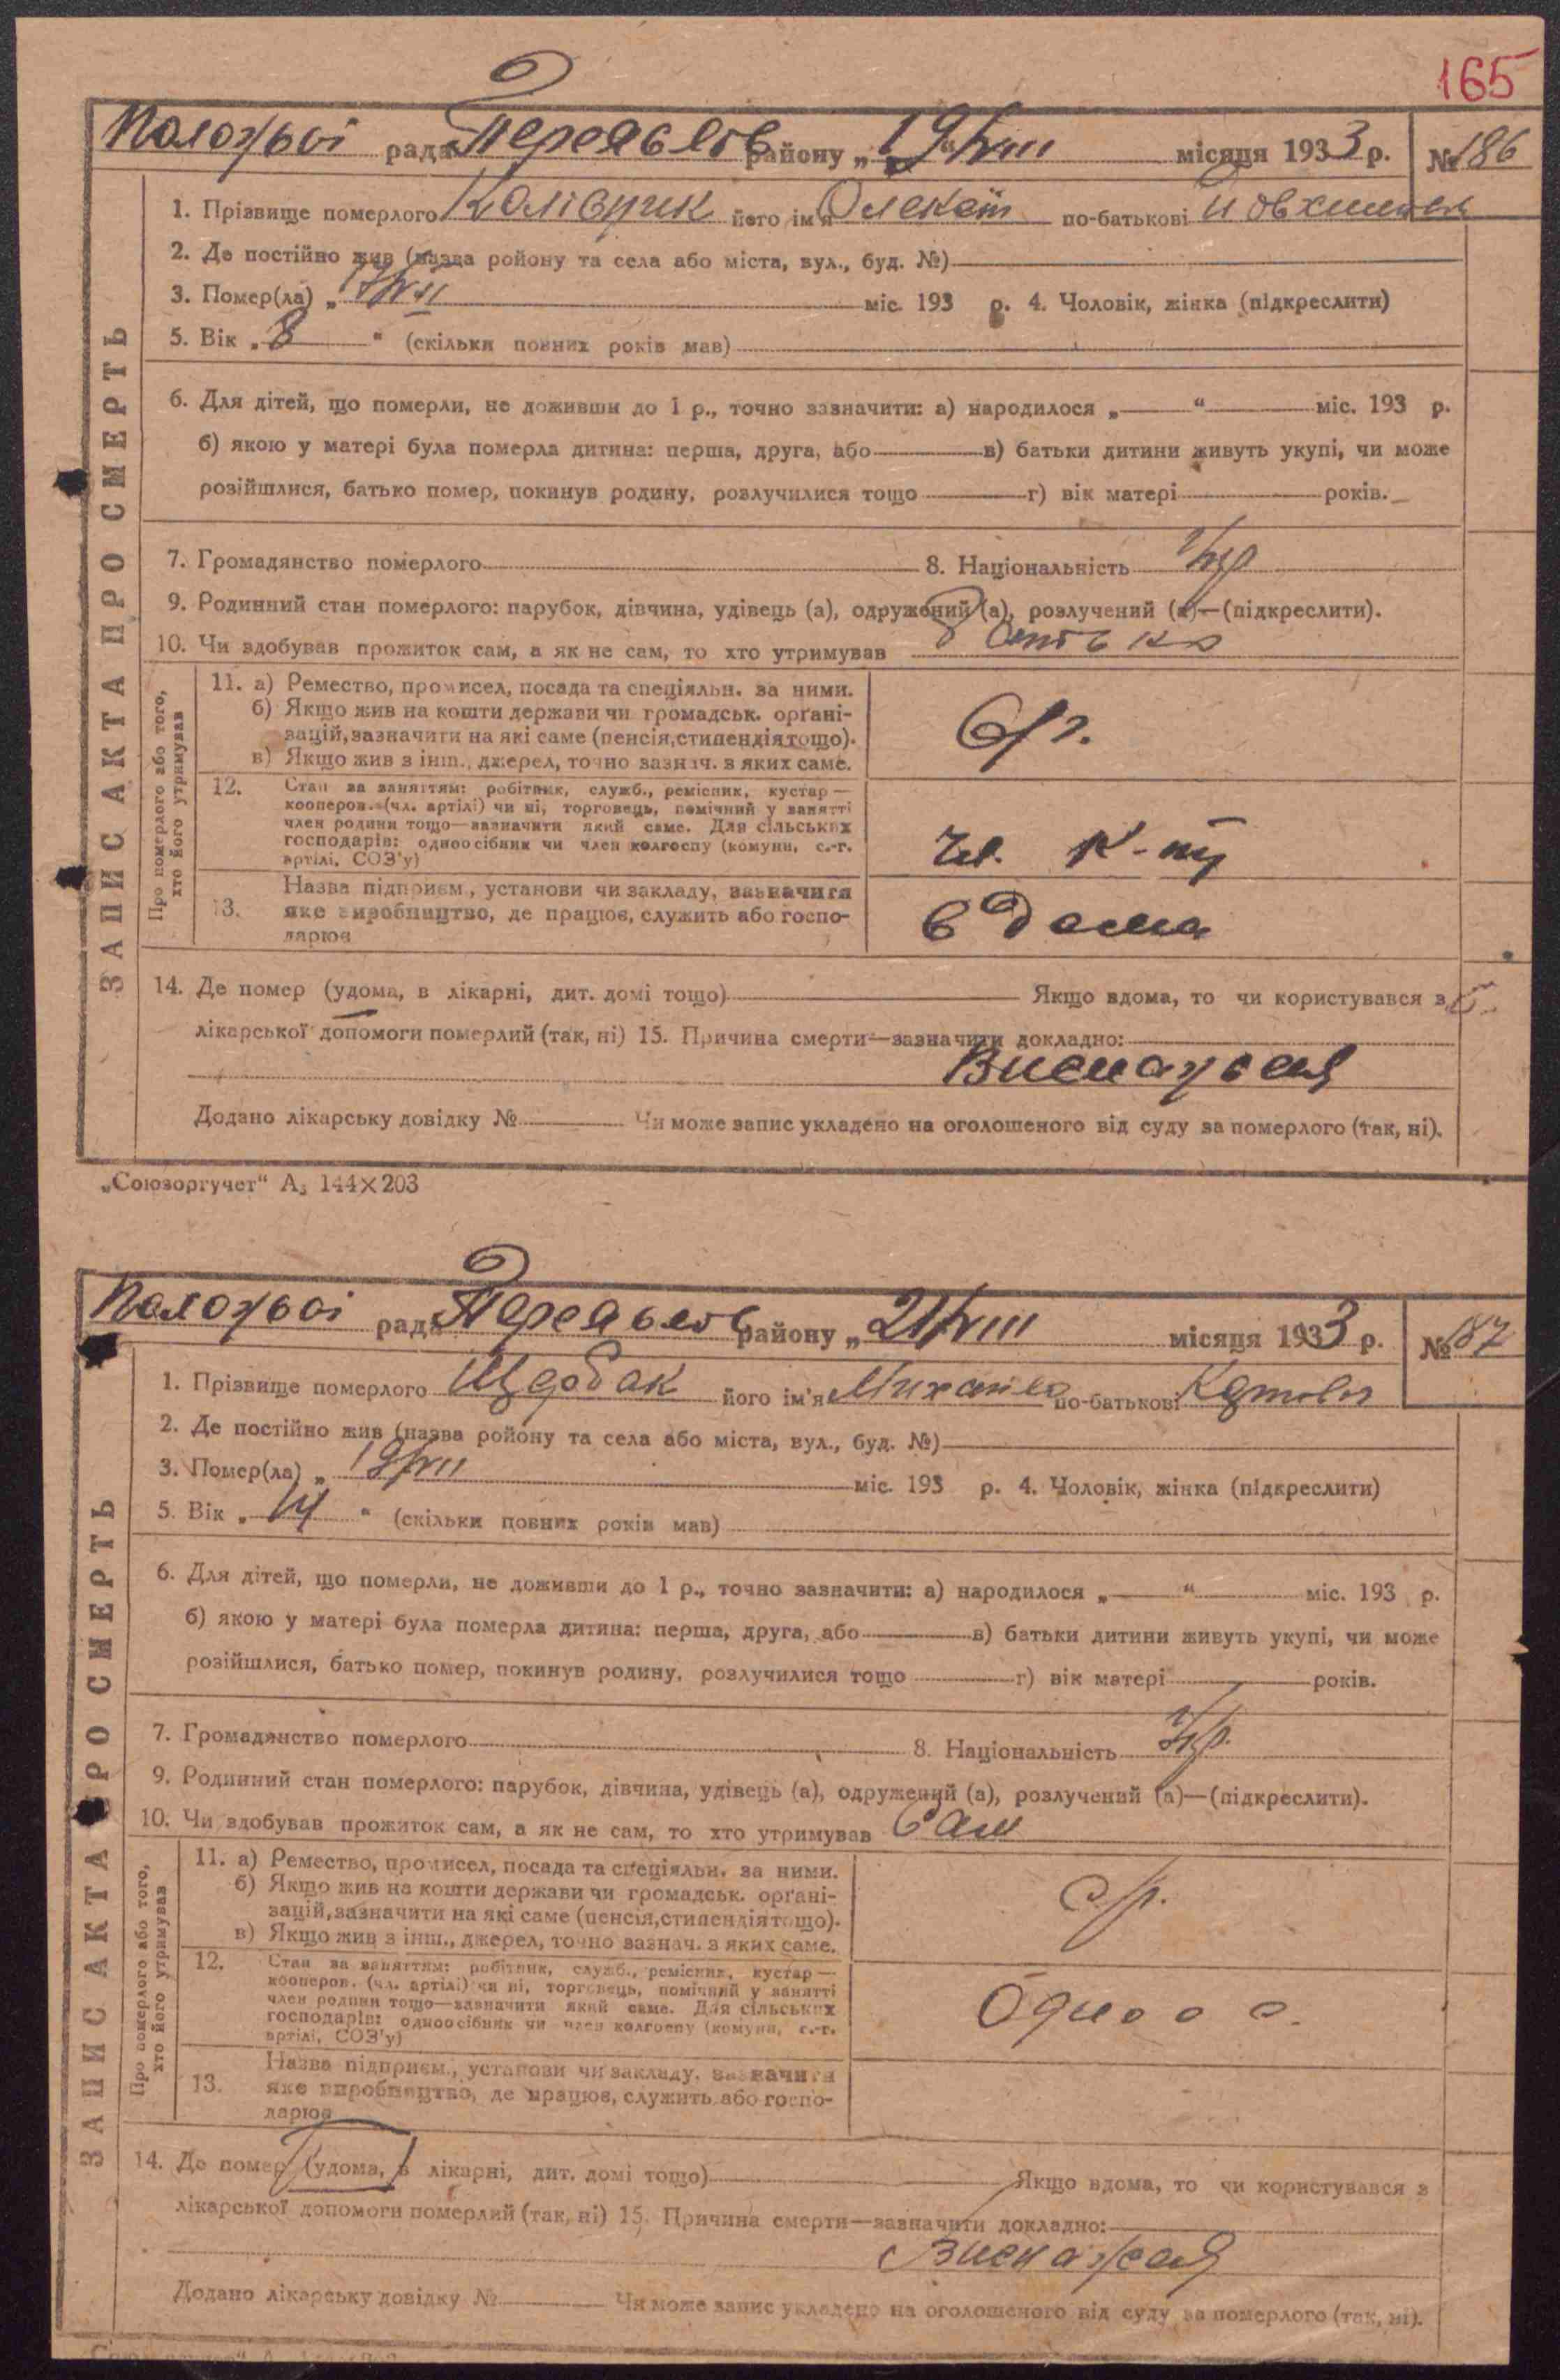 165
рада Переяслов району „ 19/VIII місяця 1933 р. № 186
1. Прізвище померлого його ім'я по-батькові
2. Де постійно жив (назва ройону та села або міста, вул., буд. №)
3. Помер(ла) „ міс. 193 р. 4. Чоловік, жінка (підкреслити)
5. Вік „ 8 " (скільки повних років мав)
6. Для дітей, що померли, не доживши до 1 р., точно зазначити: а) народилося „ " міс. 193 р.
б) якою у матері була померла дитина: перша, друга, або в) батьки дитини живуть укупі, чи може
розійшлися, батько помер, покинув родину, розлучилися тощо г) вік матері років.
7. Громадянство померлого 8. Національність Укр
9. Родинний стан померлого: парубок, дівчина, удівець (а), одружений (а), розлучений (а)—(підкреслити).
10. Чи здобував прожиток сам, а як не сам, то хто утримував батько
ЗАПИС АКТА ПРО СМЕРТЬ
Про померлого або того,
хто його утримував
11. а) Ремество, промисел, посада та спеціяльн. за ними.
б) Якщо жив на кошти держави чи громадськ. органі-
зацій, зазначити на які саме (пенсія, стипендія тощо).
в) Якщо жив з інш., джерел, точно зазнач. з яких саме.
12. Стан за заняттям: робітник, служб., ремісник, кустар —
кооперов. (чл. артілі) чи ні, торговець, помічний у занятті
член родини тощо—зазначити який саме. Для сільських
господарів: одноосібник чи член колгоспу (комуни, с.-г.
артілі, СОЗ'у)
чл. к-пу
13. Назва підприєм., установи чи закладу, зазначити
яке виробництво, де працює, служить або госпо-
дарює
вдома
14. Де помер (удома, в лікарні, дит. домі тощо) Якщо вдома, то чи користувався з
лікарської допомоги померлий (так, ні) 15. Причина смерти—зазначити докладно:
Виснажения
Додано лікарську довідку № Чи може запис укладено на оголошеного від суду за померлого (так, ні).
„Союзоргучет" А₅ 144×203
рада Переяслов району „ 21/VIII місяця 1933 р. № 187
1. Прізвище померлого Щербак його ім'я Михайло по-батькові
2. Де постійно жив (назва ройону та села або міста, вул., буд. №)
3. Помер(ла) „ міс. 193 р. 4. Чоловік, жінка (підкреслити)
5. Вік „ " (скільки повних років мав)
6. Для дітей, що померли, не доживши до 1 р., точно зазначити: а) народилося „ " міс. 193 р.
б) якою у матері була померла дитина: перша, друга, або в) батьки дитини живуть укупі, чи може
розійшлися, батько помер, покинув родину, розлучилися тощо г) вік матері років.
7. Громадянство померлого 8. Національність Укр.
9. Родинний стан померлого: парубок, дівчина, удівець (а), одружений (а), розлучений (а)—(підкреслити).
10. Чи здобував прожиток сам, а як не сам, то хто утримував Сам
ЗАПИС АКТА ПРО СМЕРТЬ
Про померлого або того,
хто його утримував
11. а) Ремество, промисел, посада та спеціяльн. за ними.
б) Якщо жив на кошти держави чи громадськ. органі-
зацій, зазначити на які саме (пенсія, стипендія тощо).
в) Якщо жив з інш., джерел, точно зазнач. з яких саме.
12. Стан за заняттям: робітник, служб., ремісник, кустар —
кооперов. (чл. артілі) чи ні, торговець, помічний у занятті
член родини тощо—зазначити який саме. Для сільських
господарів: одноосібник чи член колгоспу (комуни, с.-г.
артілі, СОЗ'у)
13. Назва підприєм., установи чи закладу, зазначити
яке виробництво, де працює, служить або госпо-
дарює
14. Де помер (удома, в лікарні, дит. домі тощо) Якщо вдома, то чи користувався з
лікарської допомоги померлий (так, ні) 15. Причина смерти—зазначити докладно:
Додано лікарську довідку № Чи може запис укладено на оголошеного від суду за померлого (так, ні).